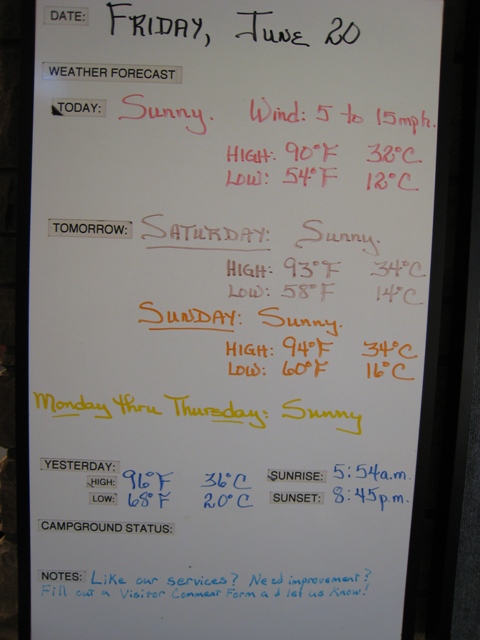 DATE: FRIDAY, JUNE 20
WEATHER FORECAST
TODAY: Sunny. Wind: 5 to 15mph.
HIGH: 90°F 32°C
LOW: 54°F 12°C
TOMORROW: SATURDAY: Sunny.
HIGH: 93°F 34°C
LOW: 58°F 14°C
SUNDAY: Sunny.
HIGH: 94°F 34°C
LOW: 60°F 16°C
Monday thru Thursday: Sunny
YESTERDAY:
HIGH: 96°F 36°C SUNRISE: 5:54a.m.
LOW: 68°F 20°C SUNSET: 8:45p.m.
CAMPGROUND STATUS:
NOTES: Like our services? Need improvement?
Fill out a Visitor Comment Form a d let us know!